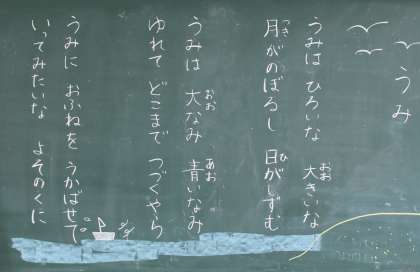 うみ
うみは ひろいな 大きいな
月がのぼるし 日がしずむ
うみは 大なみ 青いなみ
ゆれて どこまで つづくやら
うみに おふねを うかばせて
いってみたいな よそのくに